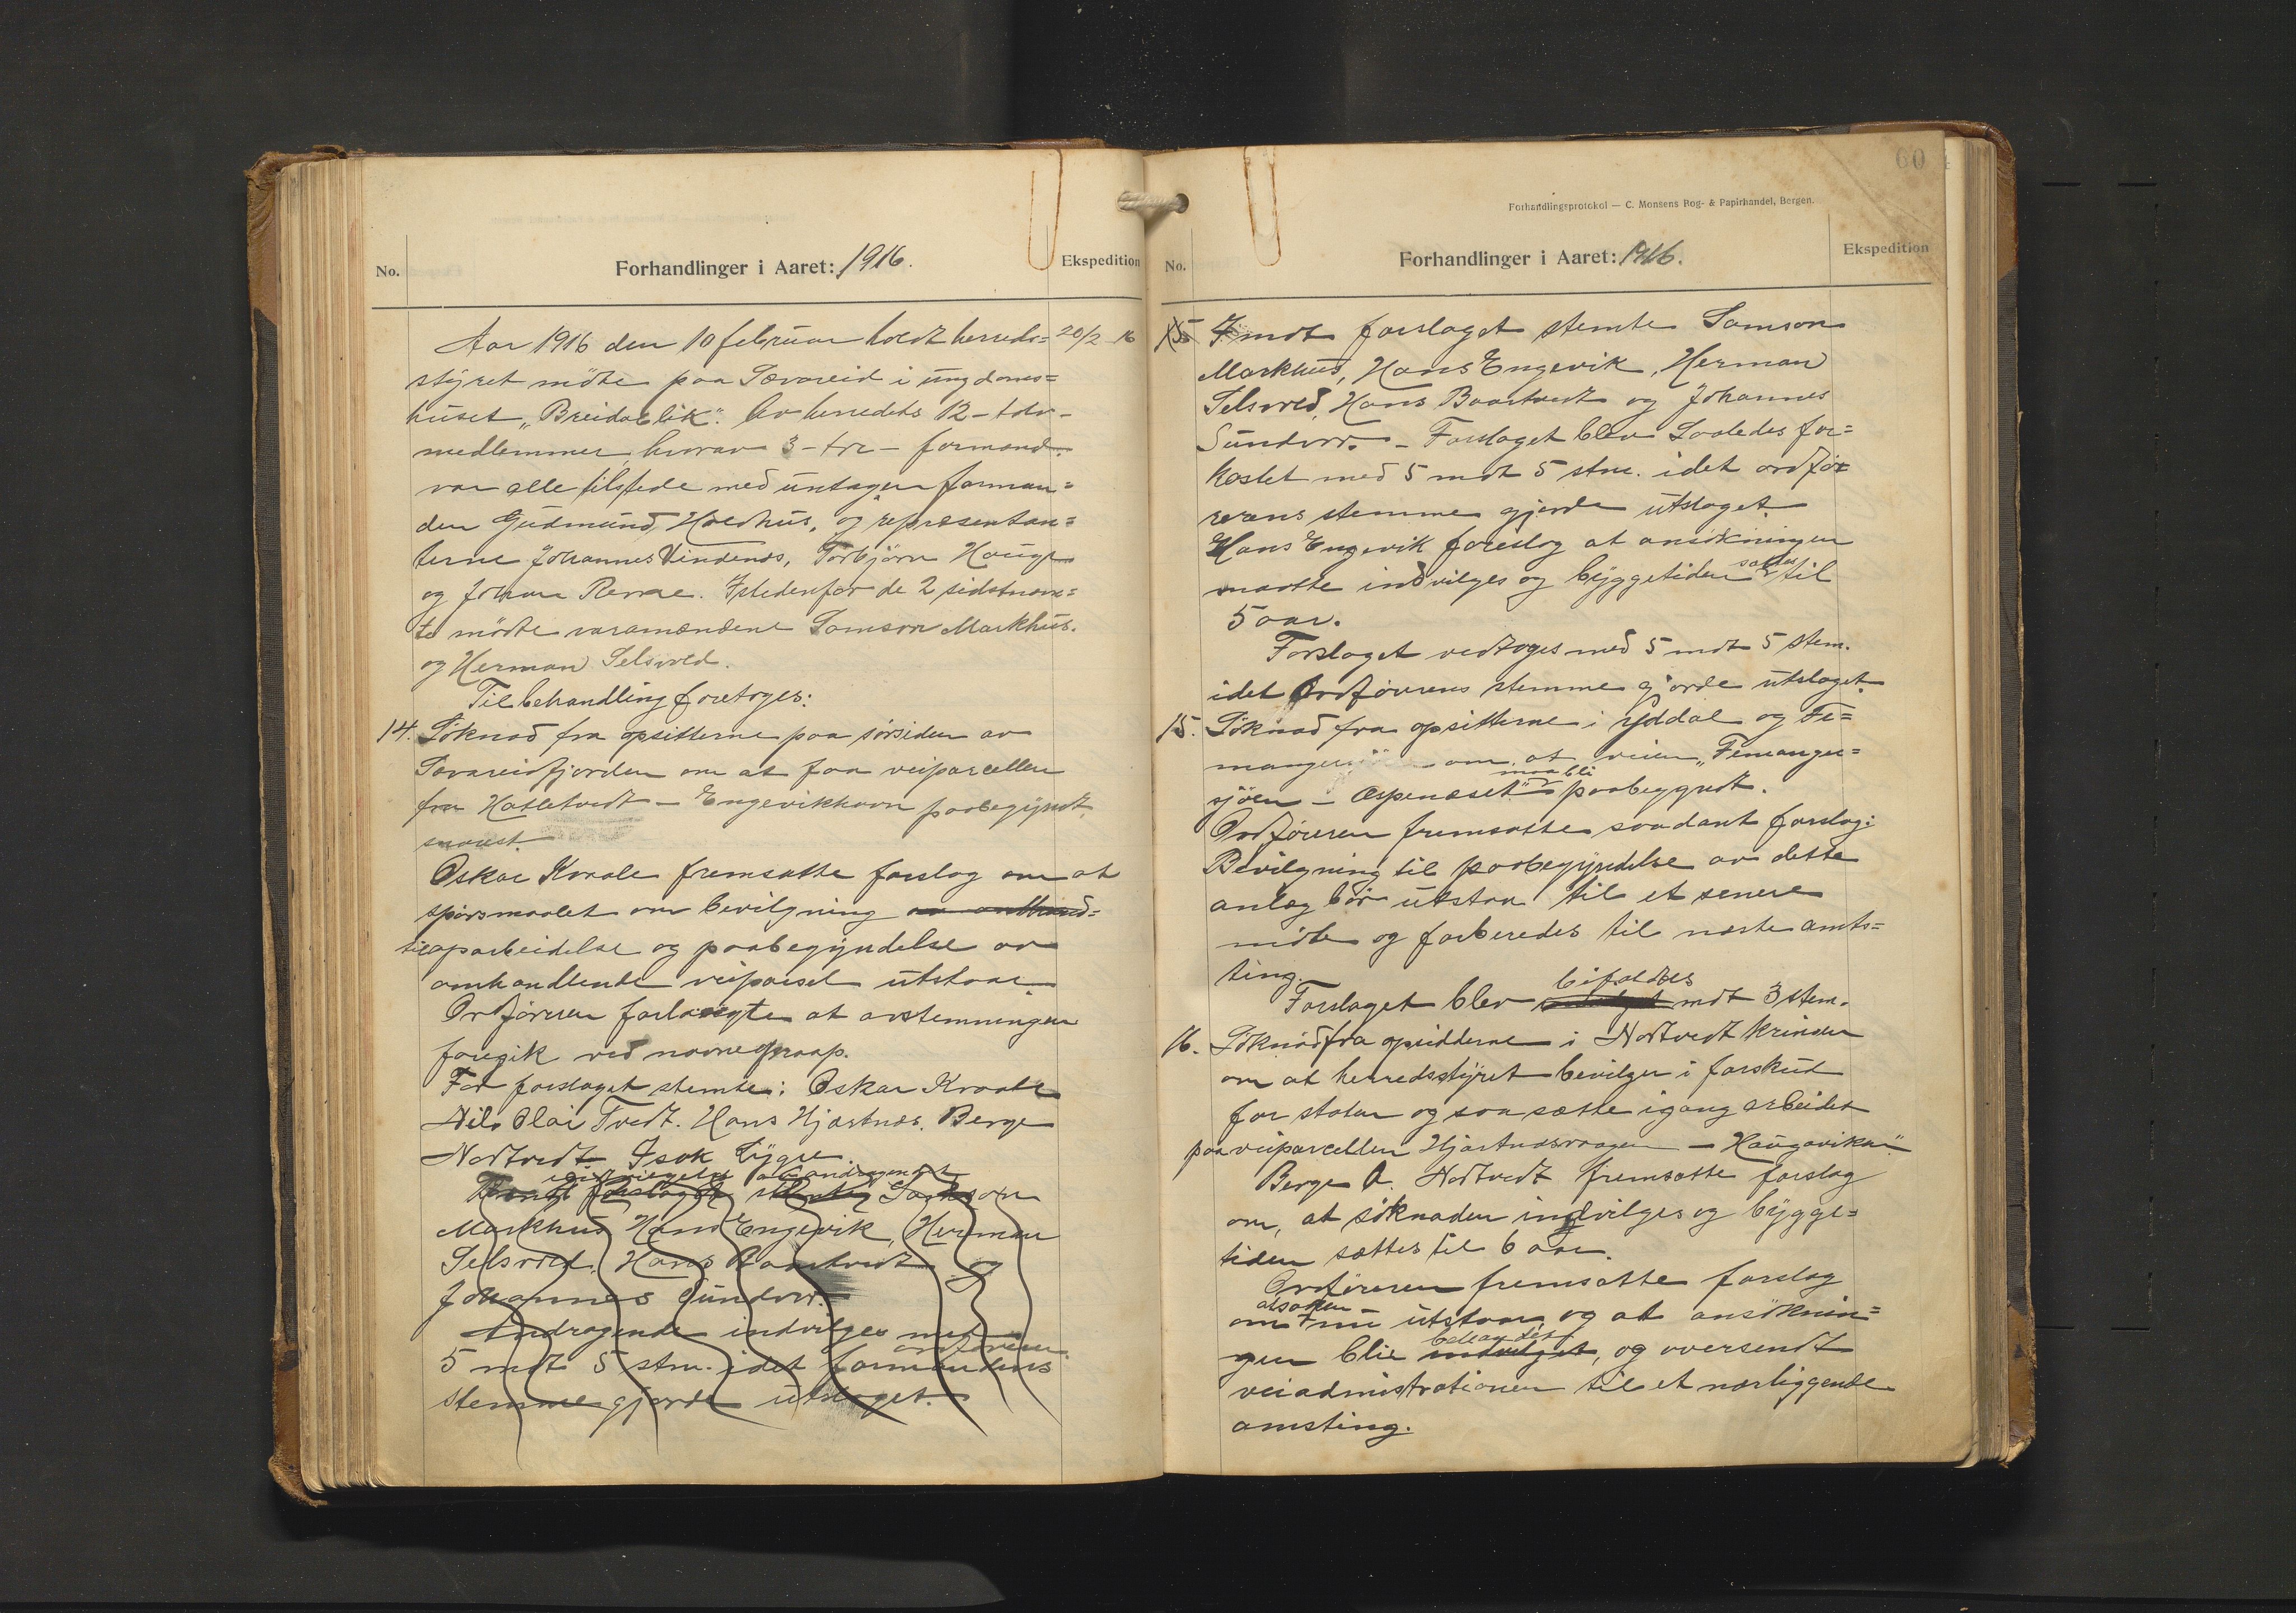 No.
Forhandlinger i Aaret: 1916.
Ekspedition
Aar 1916 den 10 februar holdt herreds=
20/2 16
styret möte paa Sævareid i ungdoms=
huset „Breidablik". Av herredets 12 - tolv -
medlemmer hvorav 3 - tre - formænd
var alle tilstede med untagen forman=
den Gudmund Holdhus, og repræsentan=
terne Johannes Vindenes, Torbjörn Hauge
og Johan Remme. Istedenfor de 2 sidstnævn=
te mödte varamændene Samson Markhus
og Herman Selsvold.
Til behandling foretoges:
14. Söknad fra opsitterne paa sörsiden av
Sævareidfjorden om at faa veiparcellen
fra Hatletvedt - Engevikhavn paabegyndt
snarest
Oskar Kvaale fremsatte forslag om at
spörsmaalet om bevilgning
til oparbeidelse og paabegyndelse av
omhandlende veiparsel utstaar.
Ordföreren forlangte at avstemningen
foregik ved navneopraap.
For forslaget stemte: Oskar Kvaale
Nils Olai Tvedt. Hans Hjartnes. Berge
Nordtvedt. Isak Lygre.
forslaget stemte Samson
Markhus Hans Engevik, Herman
Selsvold. Hans Baartvedt og
Johannes Sundvor.
Andragende indvilges med
ordförerens
5 mot 5 stm. idet formandens
stemme gjorde utslaget.
Forhandlingsprotokol — C. Monsens Bog- & Papirhandel, Bergen.
60
No.
Forhandlinger i Aaret: 1916.
Ekspedition
15 Imot forslaget stemte Samson
Markhus, Hans Engevik, Herman
Selsvold, Hans Baartvedt og Johannes
Sundvor. - Forslaget blev Saaledes for=
kastet med 5 mot 5 stm. idet ordför
rerens stemme gjorde utslaget.
Hans Engevik foreslog at ansökningen
maatte indvilges og byggetiden sættes til
5 aar.
Forslaget vedtoges med 5 mot 5 stem.
idet Ordförerens stemme gjorde utslaget.
15. Söknad fra opsitterne i Yddal og Fe=
manger om at veien „Femanger=
maa bli
sjöen - Ospenæset" paabegyndt.
Ordföreren fremsatte saadant forslag:
Bevilgning til paabegyndelse av dette
anlæg bör utstaa til et senere
möte og forberedes til næste amts=
ting.
bifaldtes
Forslaget blev mot 3 stem.
16. Söknad fra opsidderne i Nordtvedt krinsen
om at herredsstyret bevilger i forskud
for staten og saa sætte igang arbeidet
paa veiparcellen Hjartnesvaagen - Haugavikn"
Berge A. Nordtvedt fremsatte forslag
om, at söknaden indvilges og bygge=
tiden sættes til 6 aar.
Ordföreren fremsatte forslag
at saken
om nu utstaar, og at ansöknin=
behandlet
gen blir indvilget, og oversendt
veiadministrationen til et nærliggende
amsting.